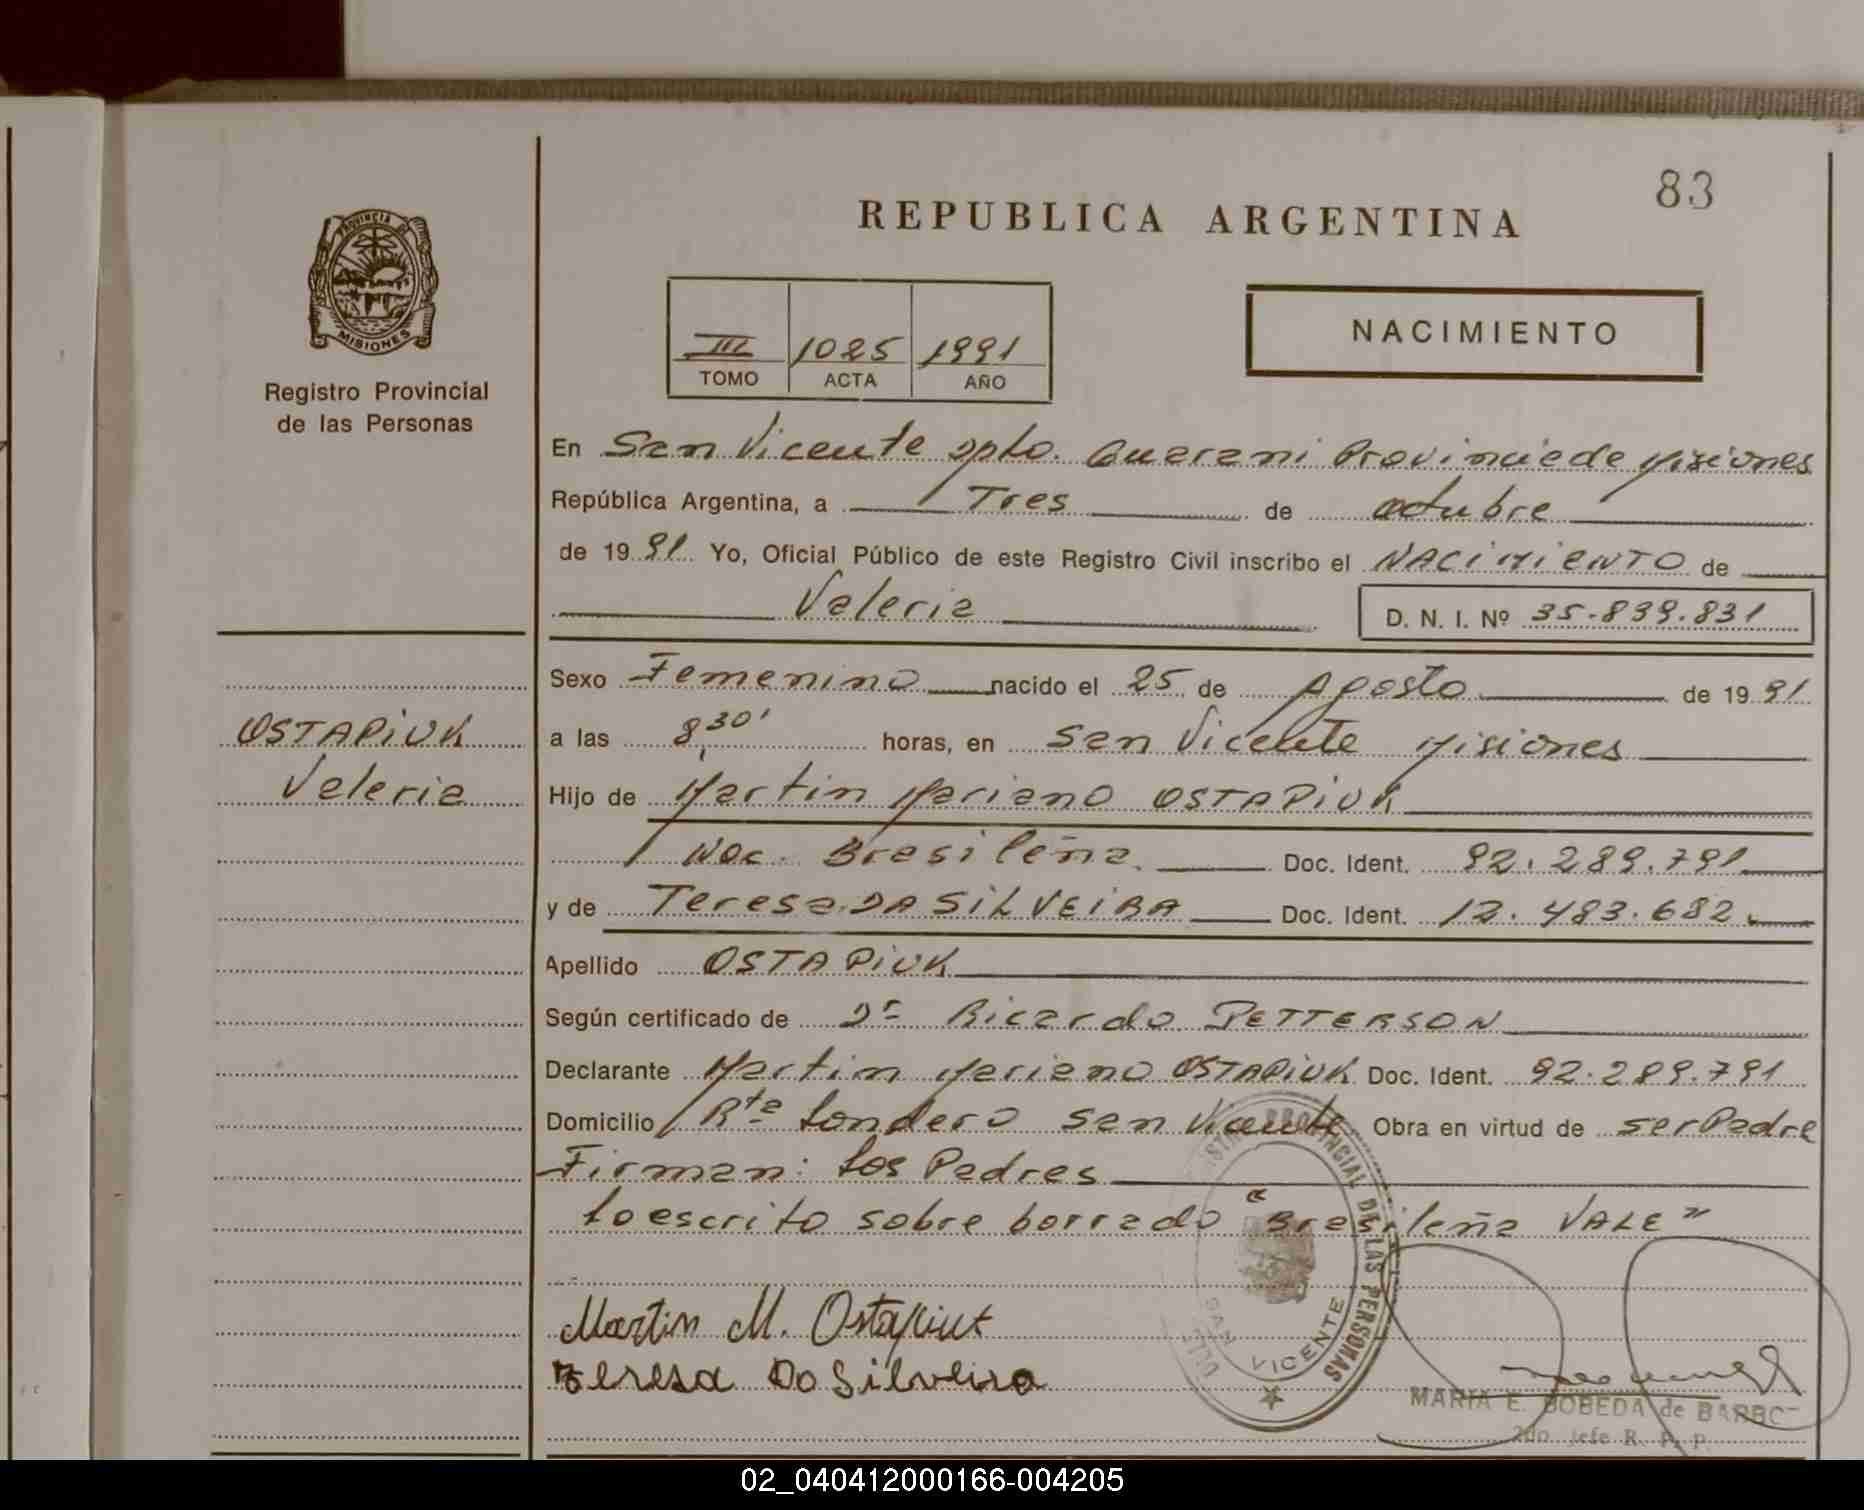 83
REPUBLICA ARGENTINA
PROVINCIA DE
MISIONES
Registro Provincial
de las Personas
III 1025 1991
TOMO ACTA AÑO
NACIMIENTO
En San Vicente Dpto. Guarani Provincia de Misiones
República Argentina, a Tres de octubre
de 1991 Yo, Oficial Público de este Registro Civil inscribo el NACIMIENTO de
Valeria D. N. I. Nº 35.839.831
Sexo Femenino nacido el 25 de Agosto de 1991
OSTAPIUK
a las 8,30' horas, en San Vicente Misiones
Valeria
Hijo de Martin Mariano OSTAPIUK
Nac. Brasileña. Doc. Ident. 92.289.791
y de Teresa DA SILVEIRA Doc. Ident. 12.483.682.
Apellido OSTAPIUK
Según certificado de Dr Ricardo PETTERSON
Declarante Martin Mariano OSTAPIUK Doc. Ident. 92.289.791
Domicilio Rta Londero San Vicente Obra en virtud de ser Padre
Firman: Los Padres
Lo escrito sobre borrado "Brasileña VALE"
Martin M. Ostapiuk
Teresa Da Silveira
PROVINCIAL DE LAS PERSONAS
SAN VICENTE
MARIA E. BOBEDA de BARBO
2do. Jefe R. P. P.
02_040412000166-004205